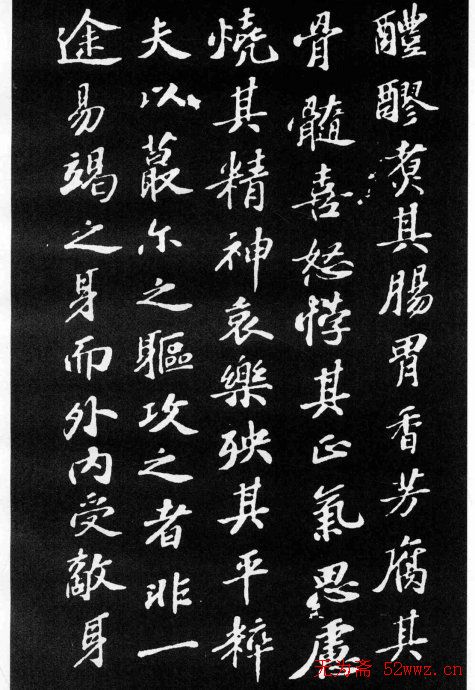 醴醪煑其腸胃香芳腐其
骨髓喜怒悖其正氣思慮
燒其精神哀樂殃其平粹
夫以蕞尓之軀攻之者非一
途易竭之身而外内受敵身
无为斋 52wwz.cn